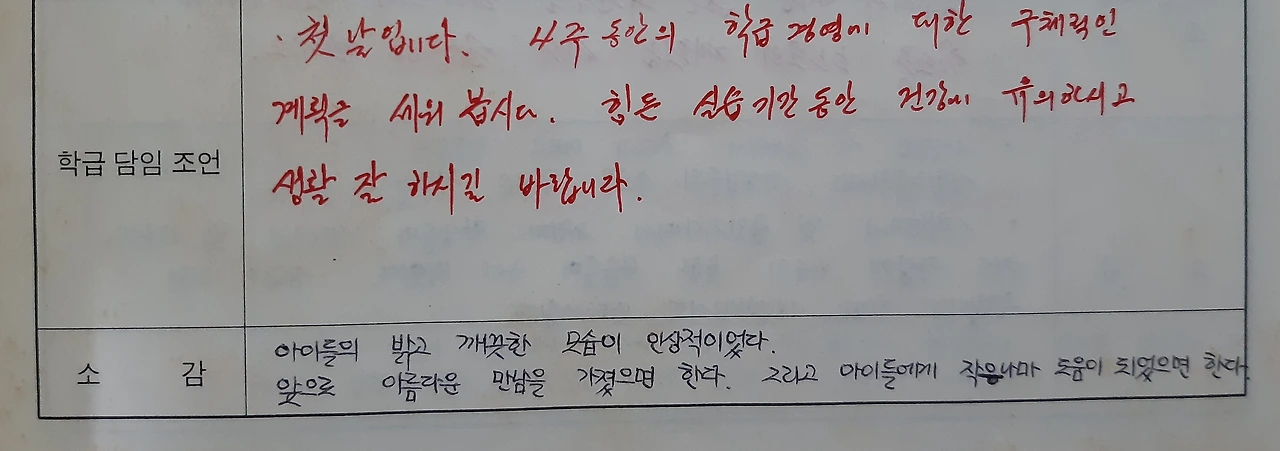 · 첫 날입니다. 4주 동안의 학급경영에 대한 구체적인
계획을 세워 봅시다. 힘든 실습기간동안 건강에 유의하시고
학급 담임 조언
생활 잘 하시길 바랍니다.
아이들의 밝고 깨끗한 모습이 인상적이었다.
소 감
앞으로 아름다운 만남을 가졌으면 한다. 그리고 아이들에게 작으나마 도움이 되었으면 한다.